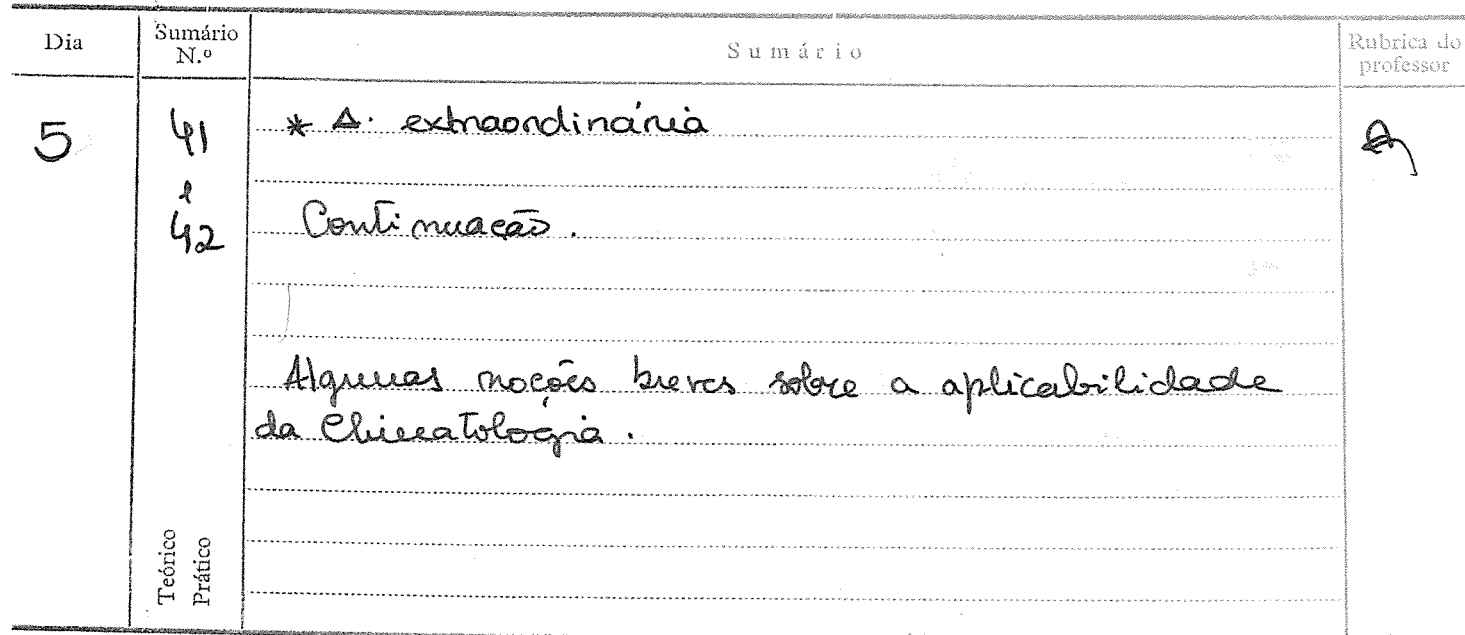 Dia
Sumário N.º
Sumário
Rubrica do professor
5
41
* Δ. extraordinária
e
42
Continuação.
Algumas noções breves sobre a aplicabilidade
da Climatologia.
Teórico
Prático